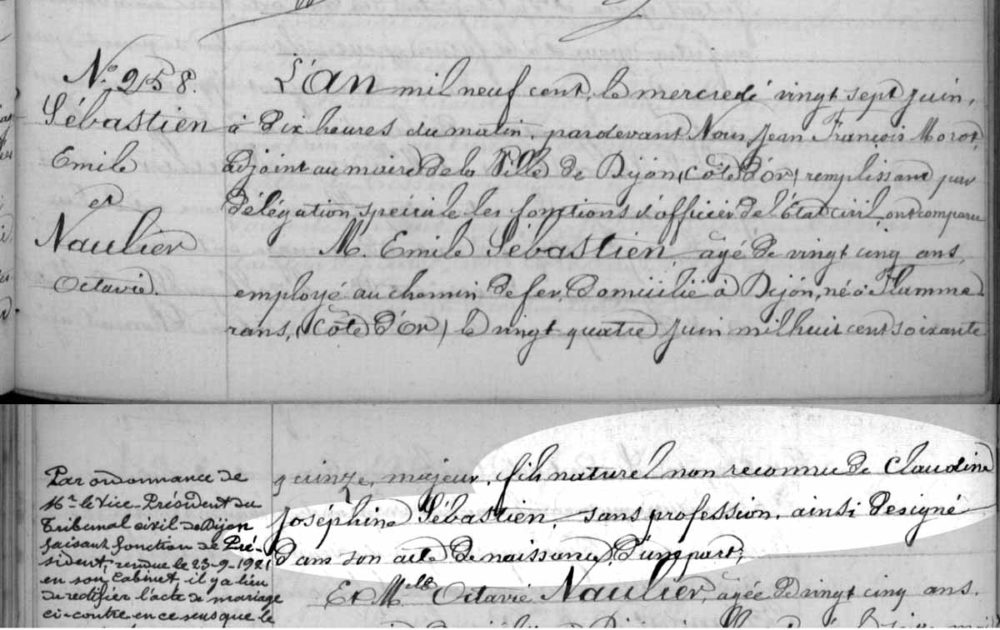 N.° 258.
Sébastien
Emile
et
Naulier
Octavie.
L'an mil neuf cent, le mercredi vingt sept juin,
à dix heures du matin, pardevant Nous, Jean François Morot,
adjoint au maire de la Ville de Dijon, (Côte d'Or) remplissant par
délégation spéciale les fonctions d'officier de l'état civil, ont comparu
M. Emile Sébastien âgé de vingt cinq ans,
employé au chemin de fer, domicilié à Dijon, né à Flamme
rans, (Côte d'Or) le vingt quatre juin mil huit cent soixante
quinze, majeur, fils naturel non reconnu de Claudine
Joséphine Sébastien, sans profession, ainsi désigné
dans son acte de naissance, d'une part;
Et Melle Octavie Naulier, âgée de vingt cinq ans.
Par ordonnance de
Mr le Vice-Président du
Tribunal civil de Dijon
faisant fonction de Pré-
sident, rendue le 23-9-1921
en son Cabinet, il y a lieu
de rectifier l'acte de mariage
ci-contre en ce sens que le